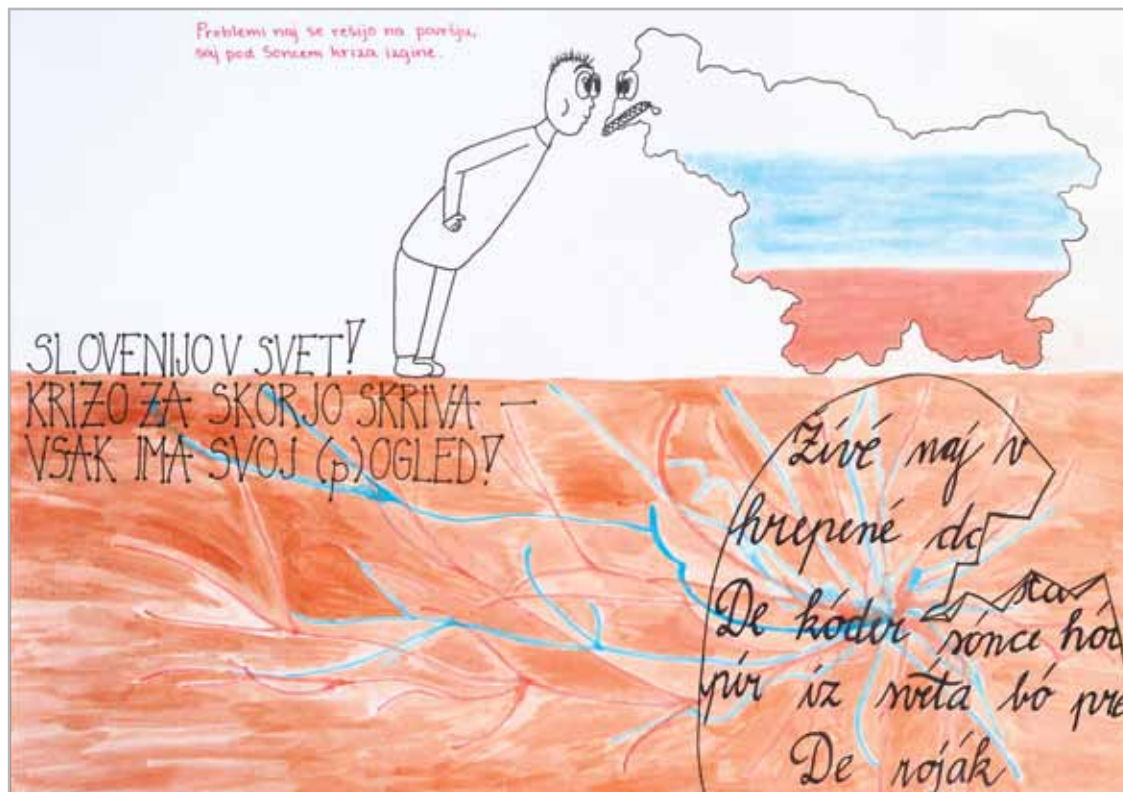 Problemi naj se rešijo na površju,
saj pod Soncem kriza izgine.
SLOVENIJO V SVET!
KRIZO ZA SKORJO SKRIVA –
VSAK IMA SVOJ (p)OGLED!
Živé naj v
hrepené do
De kóder sónce hód
iz svéta bó pre
De roják